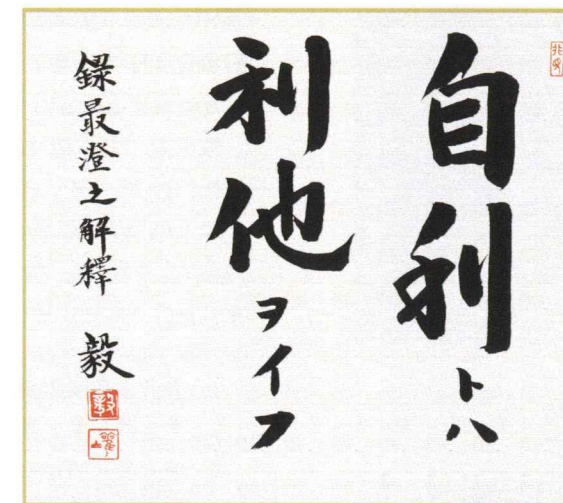 自利トハ
利他ヲイフ
録最澄之解釋 毅